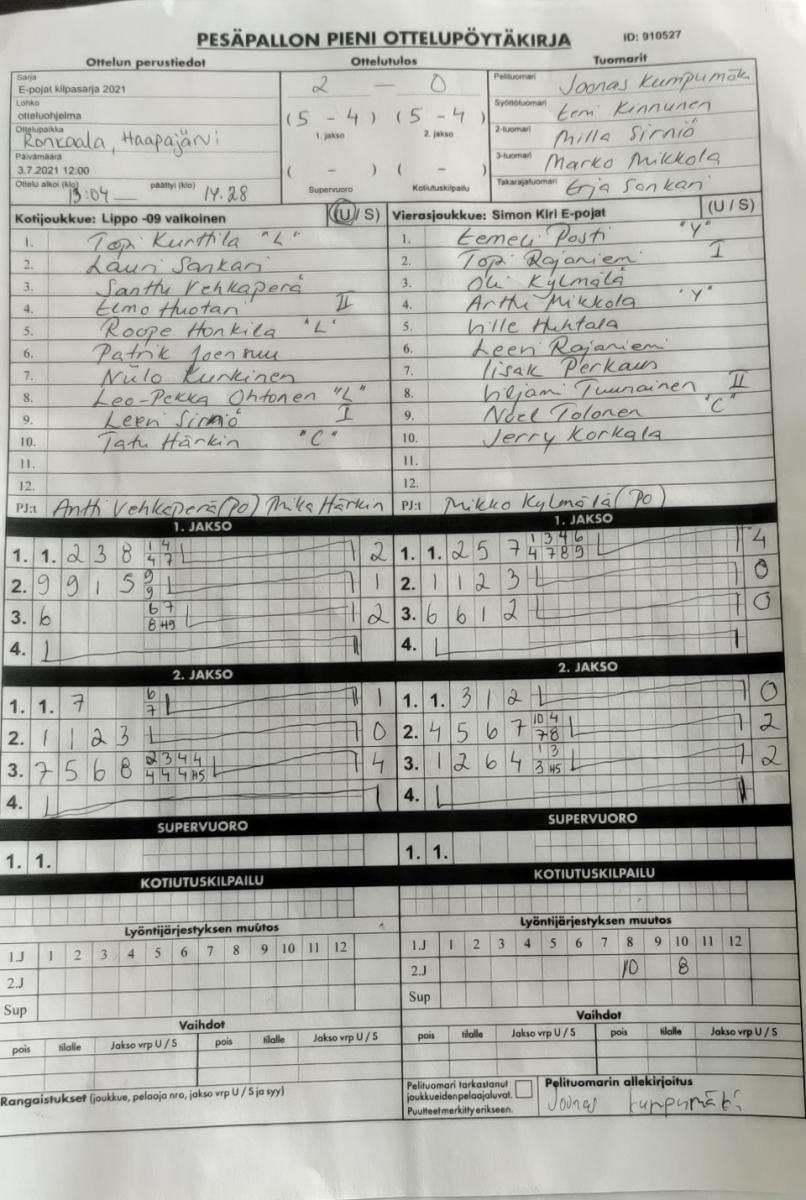 PESÄPALLON PIENI OTTELUPÖYTÄKIRJA ID: 910527
Ottelun perustiedot Ottelutulos Tuomarit
Sarja
E-pojat kilpasarja 2021
Lohko
otteluohjelma
Ottelupaikka
Ronkaala, Haapajärvi
Päivämäärä
3.7.2021 12:00
Ottelu alkoi (klo) 13:04 päättyi (klo) 14.28
2 — 0
(5 - 4) (5 - 4)
1. jakso 2. jakso
( - ) ( - )
Supervuoro Kotiutuskilpailu
Pelituomari Joonas Kumpumäk
Syöttötuomari Eemi Kinnunen
2-tuomari Milla Sirniö
3-tuomari Marko Mikkola
Takarajatuomari Erja Sankari
Kotijoukkue: Lippo -09 valkoinen (U / S)
1. Topi Kurttila "L"
2. Lauri Sankari
3. Santtu Vehkaperä
4. Elmo Huotari II
5. Roope Honkila "L"
6. Patrik Joensuu
7. Niilo Kurkinen
8. Leo-Pekka Ohtonen "L"
9. Leevi Sirniö I
10. Tatu Härkin "C"
11.
12.
PJ:t Antti Vehkaperä (PO) Mika Härkin
Vierasjoukkue: Simon Kiri E-pojat (U / S)
1. Eemeli Posti "Y"
2. Topi Rajaniemi I
3. Oli Kylmälä
4. Arttu Mikkola "Y"
5. Ville Huhtala
6. Leevi Rajaniemi
7. Iisak Perkaus
8. Viljami Tuunainen II
9. Noel Tolonen "C"
10. Jerry Korkala
11.
12.
PJ:t Mikko Kylmälä (PO)
1. JAKSO
1. 1. 2 3 8 1 4 2
4 7
2. 9 9 1 5 9 1
9
3. 6 6 7 2
8 H9
4.
1. JAKSO
1. 1. 2 5 7 1 3 4 6 4
4 7 8 9
2. 1 1 2 3 0
3. 6 6 1 2 0
4.
2. JAKSO
1. 1. 7 6 1
7
2. 1 1 2 3 0
3. 7 5 6 8 2 3 4 4 4
4 4 4 H5
4.
2. JAKSO
1. 1. 3 1 2 0
2. 4 5 6 7 10 4 2
7 8
3. 1 2 6 4 1 3 2
3 H5
4.
SUPERVUORO
1. 1.
SUPERVUORO
1. 1.
KOTIUTUSKILPAILU
KOTIUTUSKILPAILU
Lyöntijärjestyksen muutos
1.J 1 2 3 4 5 6 7 8 9 10 11 12
2.J
Sup
Lyöntijärjestyksen muutos
1.J 1 2 3 4 5 6 7 8 9 10 11 12
2.J 10 8
Sup
Vaihdot
pois tilalle Jakso vrp U / S pois tilalle Jakso vrp U / S
Vaihdot
pois tilalle Jakso vrp U / S pois tilalle Jakso vrp U / S
Rangaistukset (joukkue, pelaaja nro, jakso vrp U / S ja syy)
Pelituomari tarkastanut
joukkueidenpelaajaluvat.
Puutteet merkitty erikseen.
Pelituomarin allekirjoitus
Joonas Kumpumäki